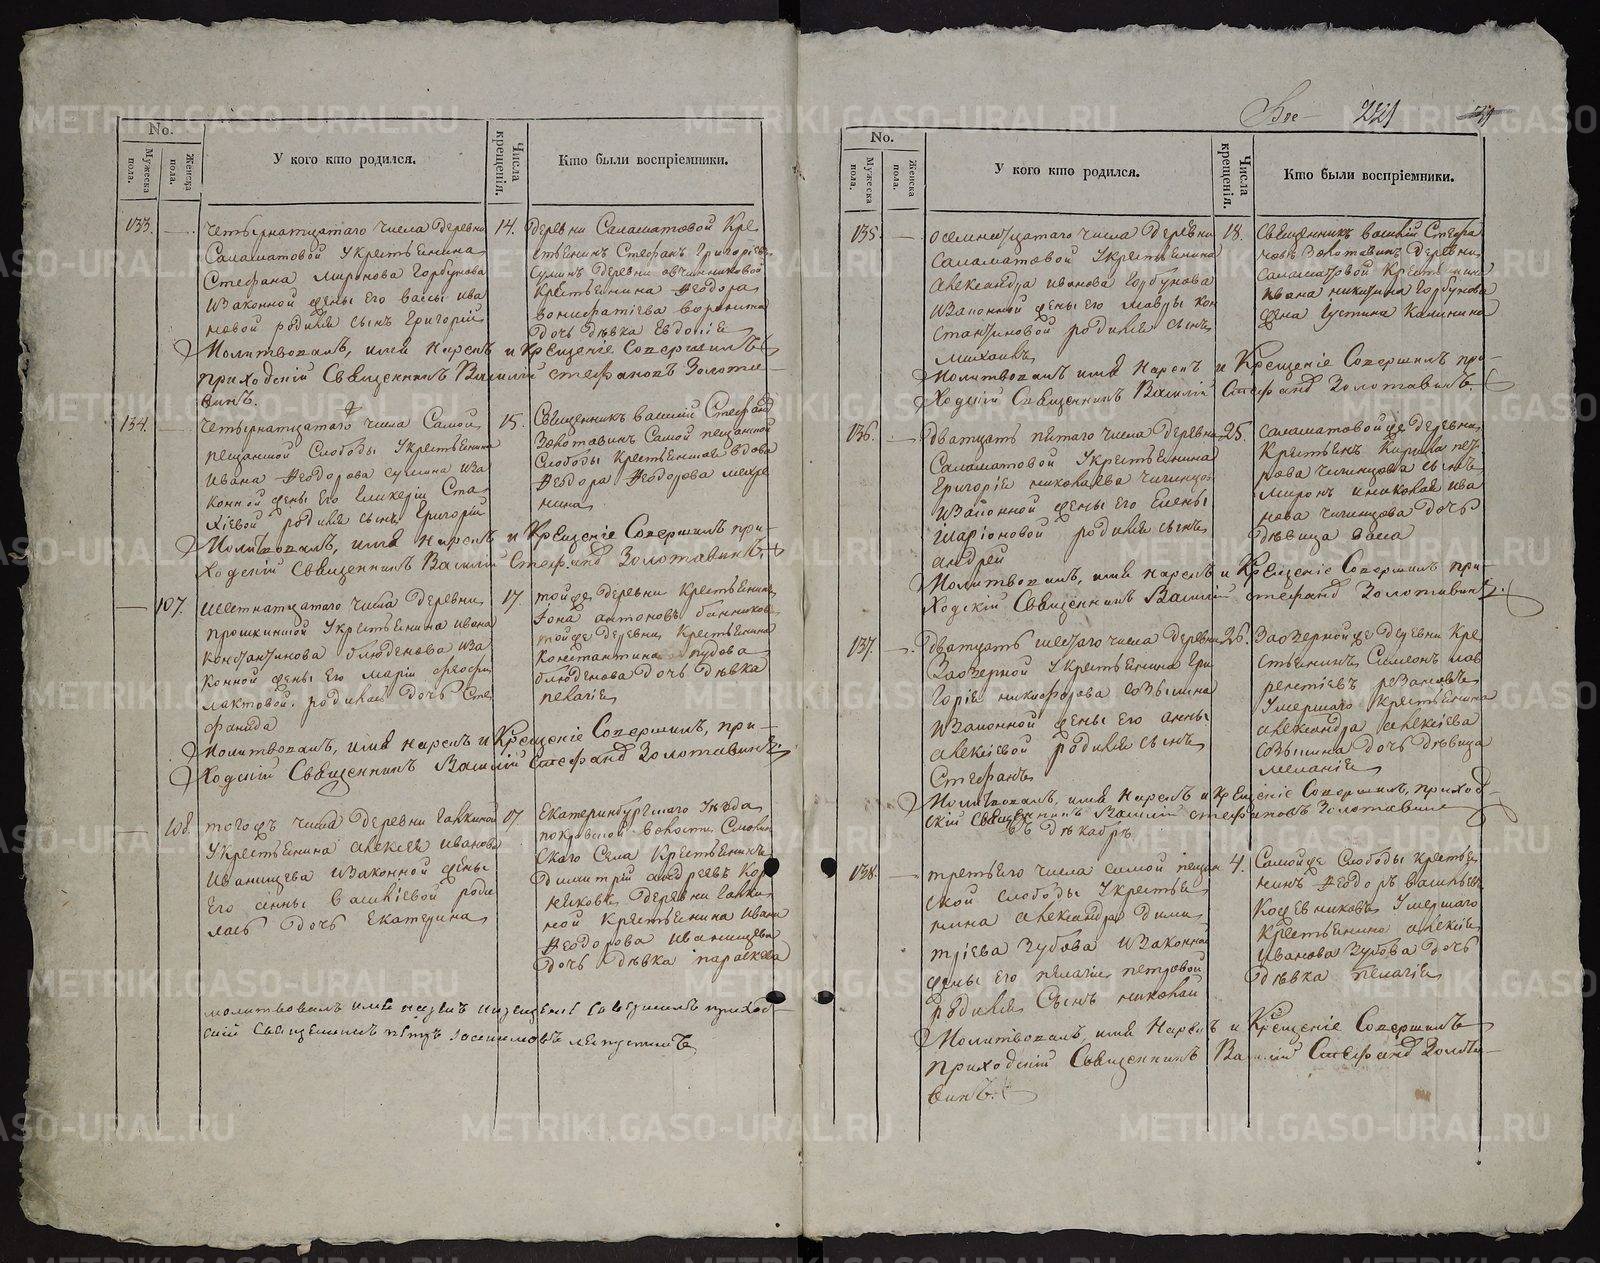 No.
Мужеска пола.
Женска пола.
У кого кто родился.
Числа крещенія.
Кто были воспріемники.
133.
четырнатцатаго числа деревни
Саламатовой Укрестьянина
Стефана Миронова Горбунова
Изаконной жены его Васы Ива
новой родился сынъ Григорій
14.
деревни Саламатовой Кре
стьянинъ Стефанъ Григорьевъ
деревни Овчинниковой
Крестьянина Феодора
дочь дѣвка Евдокія
Молитвовалъ, имя нарекъ и Крещеніе Совершилъ
приходскій Священникъ Василій Стефановъ Золота
винъ.
134.
Четырнатцатаго числа Самой
пещанской Слободы Укрестьянина
Ивана Феодорова Сулина Иза
конной жены его Гликеріи Ста
хіевой родился сынъ Григорій
15.
Священникъ Василій Стефанъ
Золотавинъ Самой пещанской
Слободы Крестьянская вдова
Феодора Феодорова
Молитвовалъ, имя нарекъ и Крещеніе Совершилъ при
ходскій Священникъ Василій Стефанъ Золотавинъ.
107.
шестнатцатаго числа деревни
прошкинской Укрестьянина Ивана
Константинова Блюденова Иза
конной жены его Маріи Феофи
лактовой родилась дочь Сте
фанида
17.
тойже деревни Крестьянинъ
Іона Антоновъ Банников
тойже деревни Крестьянина
Константина Иудова
Блюденова дочь дѣвка
пелагія
Молитвовалъ, имя нарекъ и Крещеніе Совершилъ, при
ходскій Священникъ Василій Стефанъ Золотавинъ.
108.
тогожъ числа деревни Галкиной
Укрестьянина Алексея Иванова
Иванищева Изаконной жены
Его Анны Васильевой роди
лась дочь Екатерина
17
Екатеринбургскаго Уезда
покровской волости
Скаго Села Крестьянинъ
Димитрій Андреевъ Кор
няковъ деревни Галки
ной Крестьянина Ивана
Феодорова Иванищева
дочь дѣвка параскева
молитвовалъ имя нарекъ и крещеніе совершилъ приход
скій Священникъ Петръ
221
135.
осемнатцатаго числа деревни
Саламатовой Укрестьянина
Александра Иванова Горбунова
Изаконной жены его Мавры Кон
стантиновой родился сынъ
Михаилъ
18.
Священникъ Василій Стефа
новъ Золотавинъ деревни
Саламатовой Крестьянина
Ивана Никитина Горбунова
жена Iустина Калинина
Молитвовалъ имя нарекъ и Крещеніе Совершилъ при
ходскій Священникъ Василій Стефанъ Золотавинъ.
136.
дватцать пятаго числа деревни
Саламатовой Укрестьянина
Григорія Николаева Чичинцова
Изаконной жены его Елены
Iларіоновой родился сынъ
Андрей
25.
Саламатовой же деревни
Крестьянъ Кирила пет
рова Чичинцова сынъ
Миронъ и Николая Ива
нова Чичинцова дочь
дѣвица Васа
Молитвовалъ, имя нарекъ и Крещеніе Совершилъ при
ходскій Священникъ Василій Стефанъ Золотавинъ.
137.
дватцать шестаго числа деревни
Заозерной Укрестьянина Гри
горія Никифорова Созыкина
Изаконной жены его Анны
Алексіевой родился сынъ
Стефанъ
26.
Заозерной же деревни Кре
стьянинъ Симеонъ Лав
рентіевъ
Умершаго Крестьянина
Александра Алексіева
Созыкина дочь дѣвица
Меланія
Молитвовалъ, имя нарекъ и крещеніе Совершилъ, приход
скій Священникъ Василій Стефановъ Золотавинъ
Въ Декабрѣ
138.
третьего числа самой пещан
ской слободы Укрестья
нина Александра Дими
тріева Зубова Изаконной
жены его пелагіи петровой
родился Сынъ Николай
4.
Самойже Слободы крестья
нинъ Феодоръ Васильевъ
Кожевниковъ Умершаго
Крестьянина Алексія
Иванова Зубова дочь
дѣвка пелагія
Молитвовалъ, имя нарекъ и Крещеніе Совершилъ
приходскій Священникъ Василій Стефанъ Золота
винъ.
METRIKI.GASO-URAL.RU